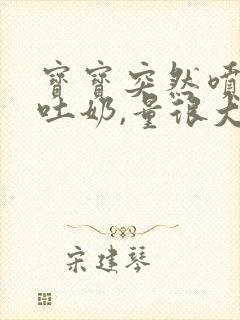 寶寶突然噴
吐奶,量很大
宋建琴